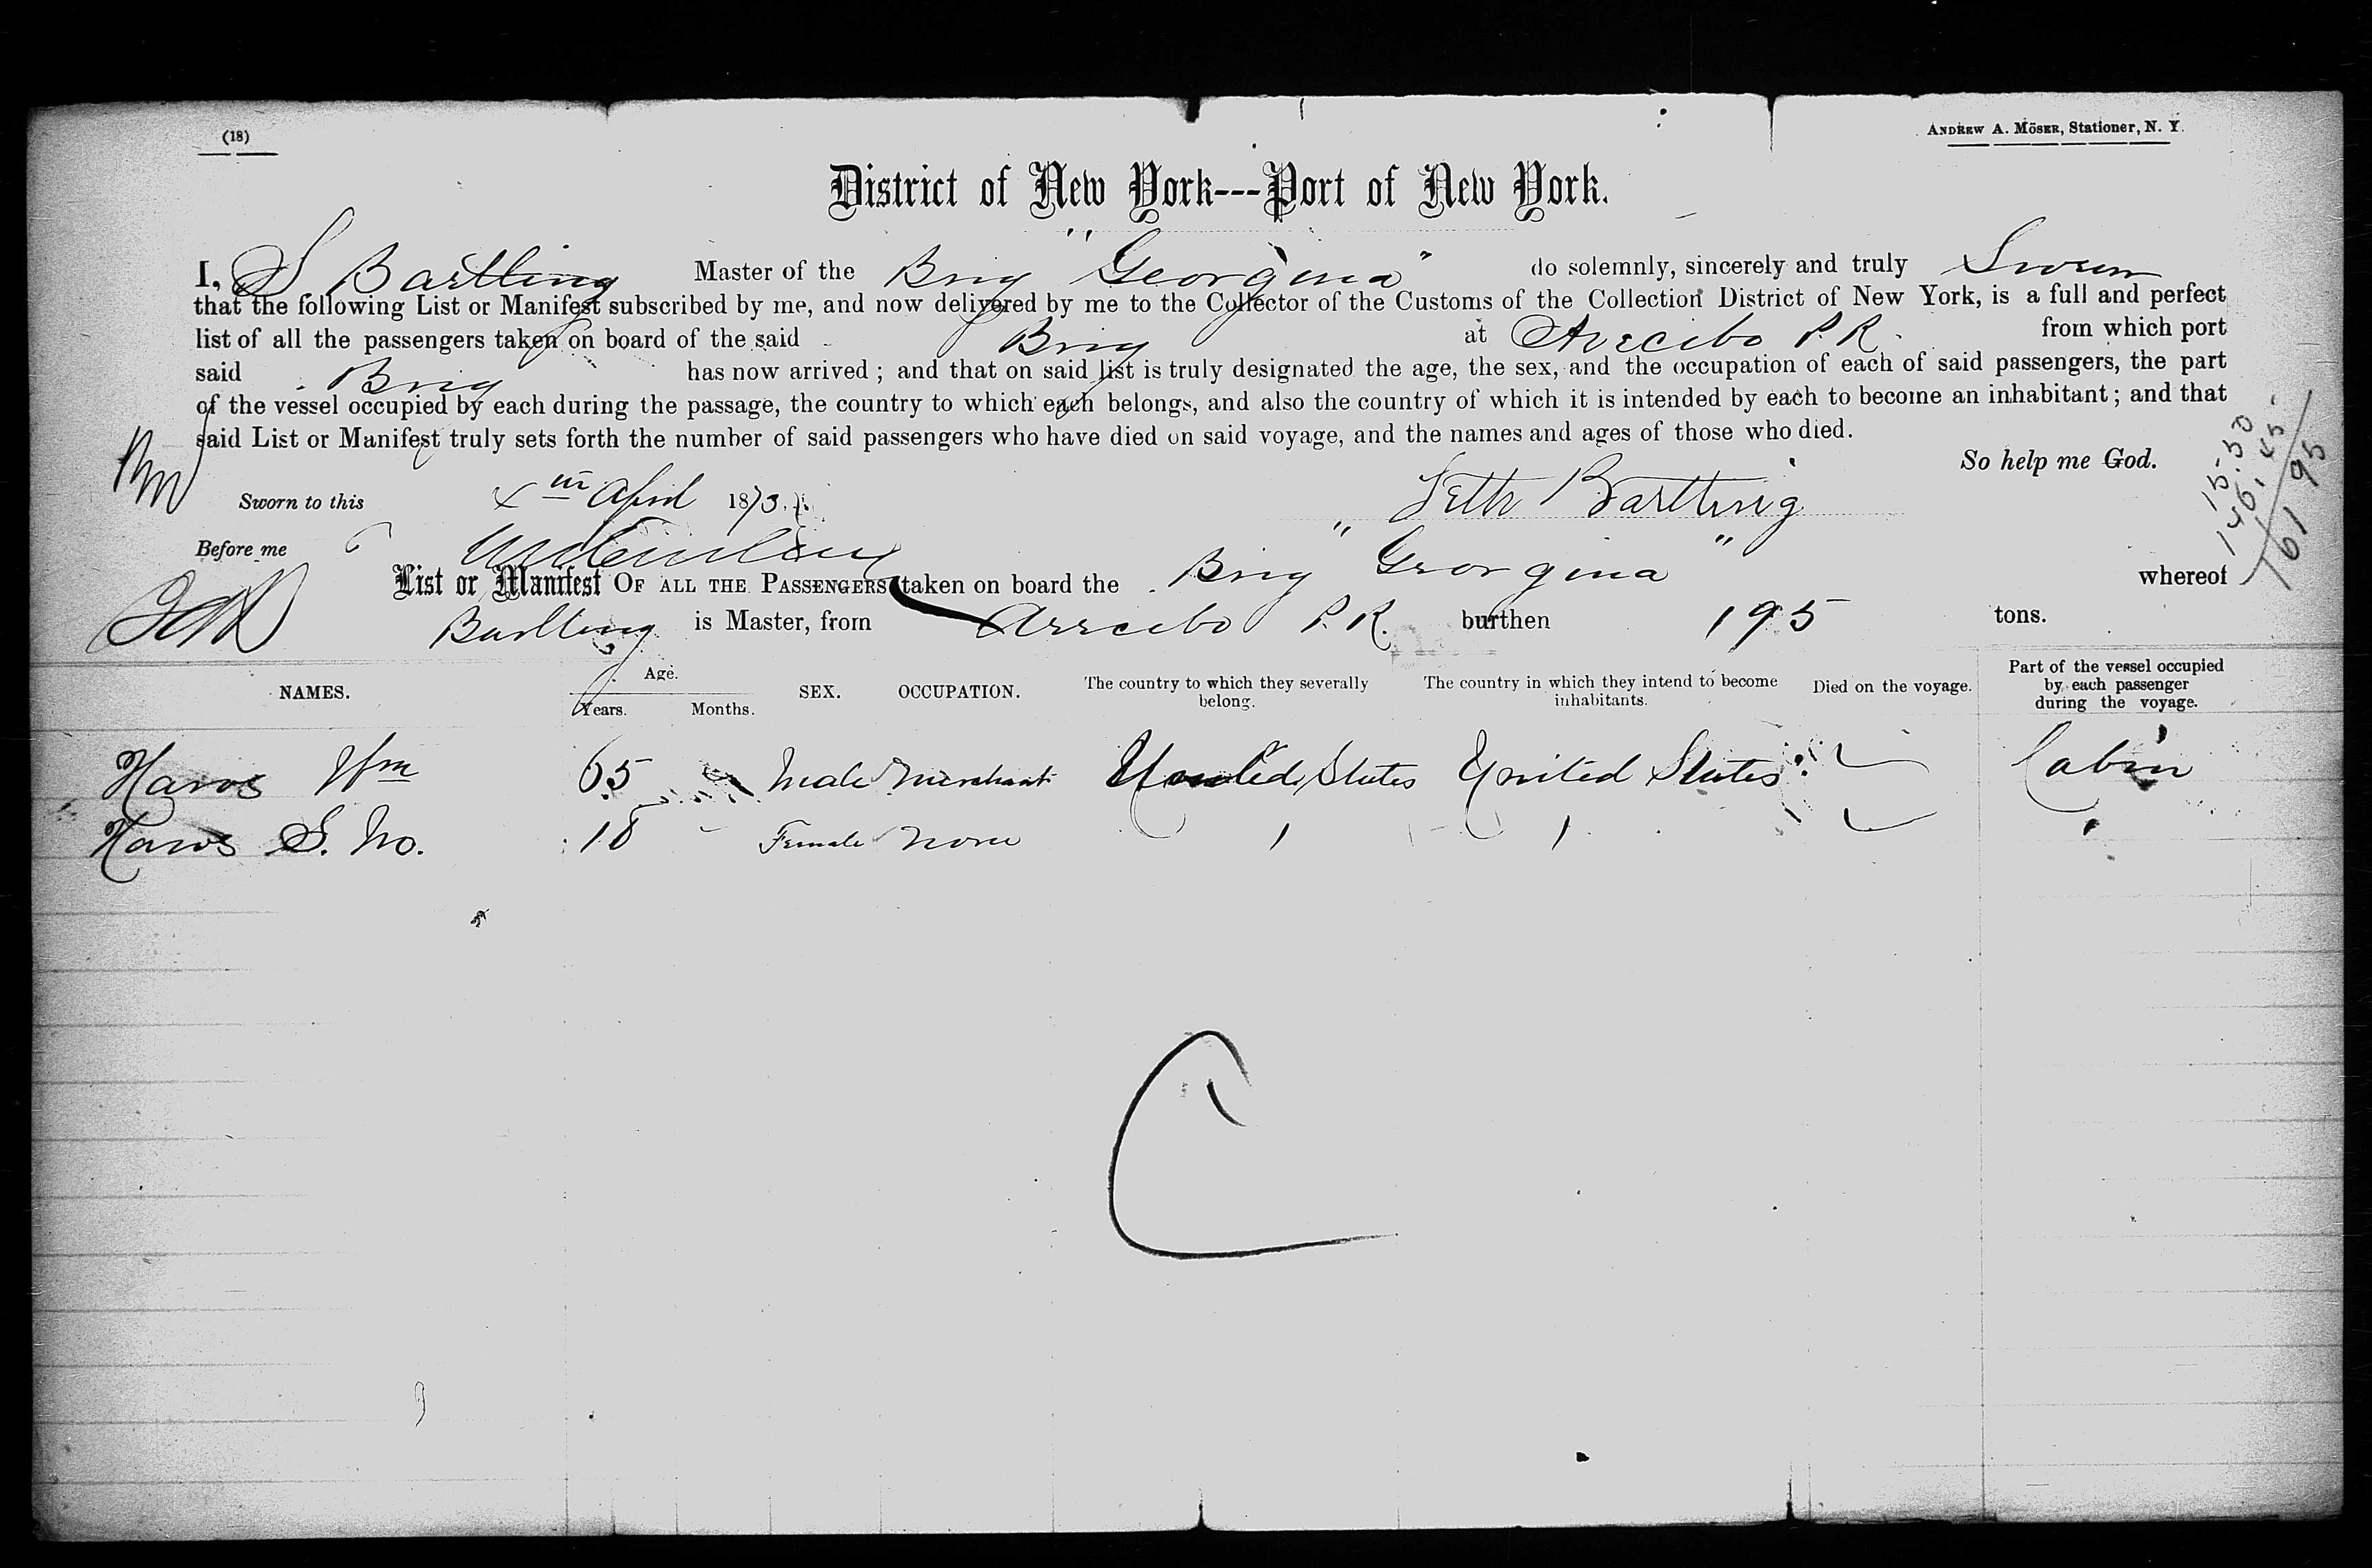 (18)
ANDREW A. MÖSER, Stationer, N. Y.
District of New York---Port of New York.
I, S Bartling Master of the Brig "Georgina" do solemnly, sincerely and truly Swear
that the following List or Manifest subscribed by me, and now delivered by me to the Collector of the Customs of the Collection District of New York, is a full and perfect
list of all the passengers taken on board of the said Brig at Arecibo P.R. from which port
said Brig has now arrived; and that on said list is truly designated the age, the sex, and the occupation of each of said passengers, the part
of the vessel occupied by each during the passage, the country to which each belongs, and also the country of which it is intended by each to become an inhabitant; and that
said List or Manifest truly sets forth the number of said passengers who have died on said voyage, and the names and ages of those who died.
So help me God.
15.50
146.45
161 95
Sworn to this April 1873. Seth Bartling
Before me
List or Manifest OF ALL THE PASSENGERS taken on board the Brig "Georgina" whereof
Bartling is Master, from Arrecibo P.R. burthen 195 tons.
NAMES. Age. Years. Months. SEX. OCCUPATION. The country to which they severally belong. The country in which they intend to become inhabitants. Died on the voyage. Part of the vessel occupied by each passenger during the voyage.
Haws Wm 65 Male Merchant United States United States Cabin
Haws S. 18 Female None
C